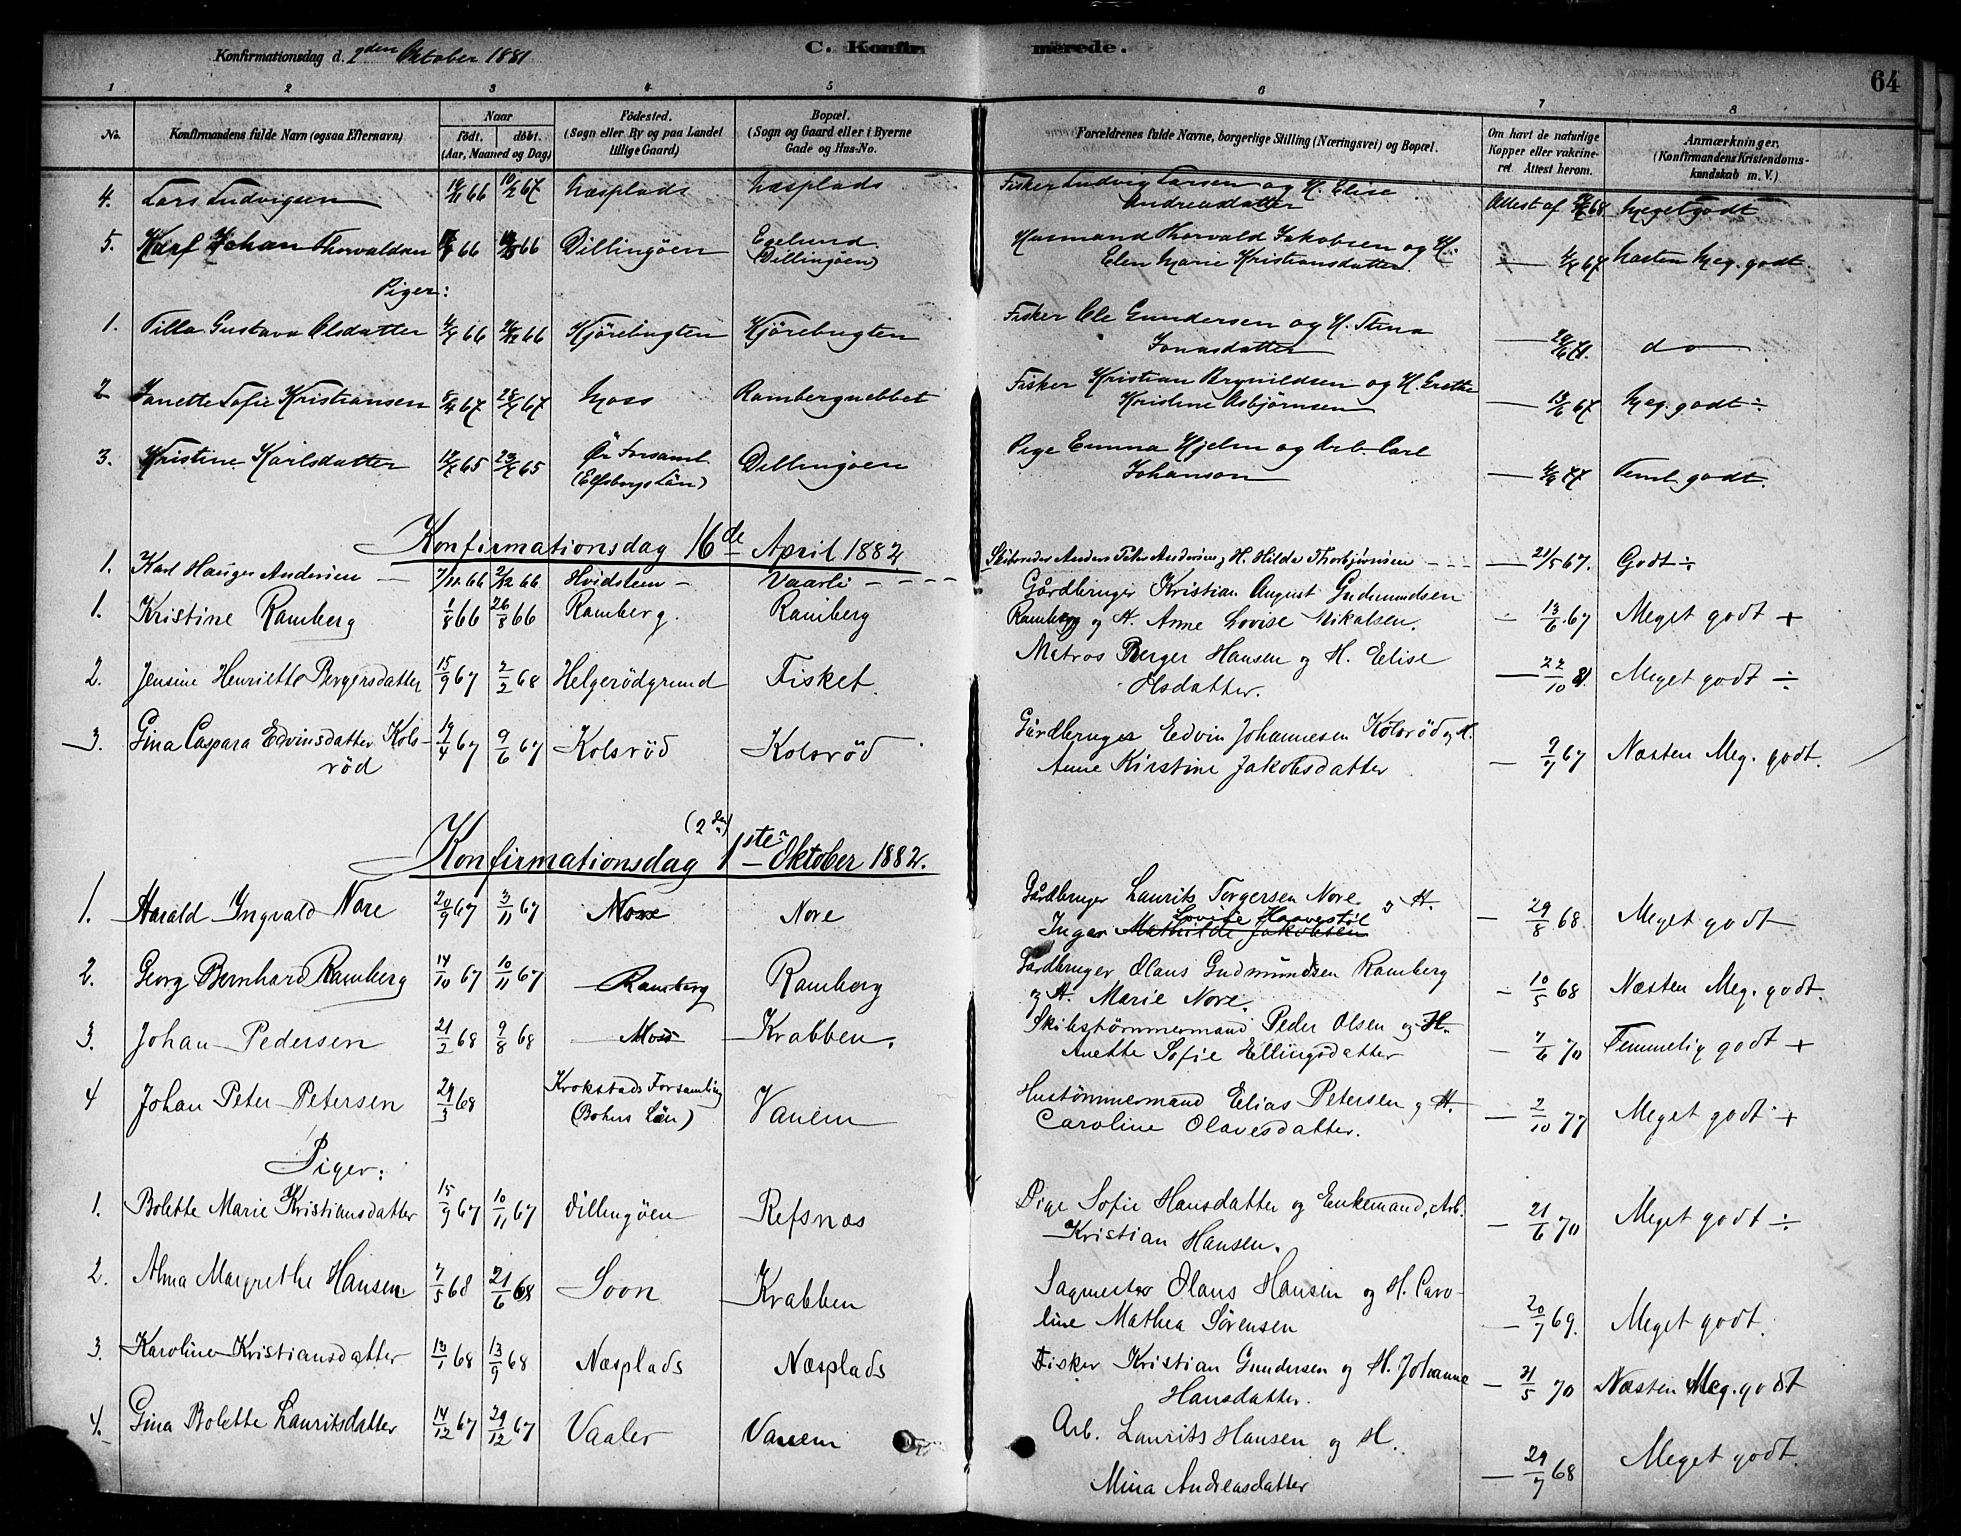 Konfirmationsdag d. 9den Oktober 1881
C. Konfirmerede.
64
1 2 3 4 5 6 7 8
No. Konfirmandens fulde Navn (ogsaa Efternavn) Naar født. døbt. (Aar, Maaned og Dag) Fødested. (Sogn eller By og paa Landet tillige Gaard) Bopæl. (Sogn og Gaard eller i Byerne Gade og Hus-No. Forældrenes fulde Navne, borgerlige Stilling (Næringsvei) og Bopæl. Om havt de naturlige Kopper eller vakcineret. Attest herom. Anmærkninger. (Konfirmandens Kristendomskundskab m. V.)
4. Lars Ludvigsen 66 67 Næsplads Næsplads Fisker Ludvig Larsen og H. Elise
Andreasdatter Attest af 68 Meget godt
5. Karl Johan Thorvaldsen 66 66 Dillingöen Egelund (Dillingöen) Husmand Thorvald Jakobsen og H.
Elen Marie Kristiansdatter. — 67 Næsten Meg. godt.
Piger:
1. Tilla Gustava Olsdatter 66 66 Kjörebugten Kjörebugten Fisker Ole Gundersen og H. Stina
Jonasdatter — do
2 Janette Sofie Kristiansen 67 67 Moss Rambergnebbet Fisker Kristian Brynildsen og H. Grethe
Kristine Asbjörnsen — 67 Meg. godt ÷
3. Kristine Karlsdatter 65 65 Ör Forsaml (Elfsborgs Län) Dillingöen Pige Emma Hjelm og Arb. Carl
Johanson — Teml. godt.
Konfirmationsdag 16de April 1882
1. Karl Hauger Andersen — 7/11 66 2/12 66 Hvidsten — Vaarli — Skibsreder Anders Peter Andersen og H. Hilda Thorbjörnsen — 21/5 67. Godt ÷
1. Kristine Ramberg 1/8 66 26/8 66 Ramberg. Ramberg Gårdbruger Kristian August Gudmundsen
Ramberg og H. Anne Lovise Nikolsen. — 13/6 67 Meget godt +
2. Jensine Henriette Bergersdatter 15/9 67 2/2 68 Helgerödgrund Fisket. Matros Berger Hansen og H. Elise
Olsdatter. — 22/10 81. Meget godt ÷
3. Gina Caspara Edvinsdatter Kols-
röd 19/4 67 9/6 67 Kolsröd Kolsröd Gårdbruger Edvin Johannesen Kolsröd og H.
Anne Kirstine Jakobsdatter — 9/7 67 Næsten Meg. godt.
(2den)
Konfirmationsdag 1ste Oktober 1882.
1. Harald Yngvald Nore 20/9 67 3/11 67 Nore Nore Gårdbruger Laurits Torgersen Nore og H.
Lovise Haavestöl
Inger Mathilde Jakobsen — 29/8 68. Meget godt
2. Georg Bernhard Ramberg 14/10 67 10/11 67 Ramberg Ramberg Gårdbruger Olaus Gudmundsen Ramberg
og H. Marie Nore. — 10/5 68 Næsten Meg. godt.
3. Johan Pedersen 21/2 68 9/8 68 Moss Krabben. Skibstömmermand Peder Olsen og H.
Anette Sofie Ellingsdatter — 7/6 70 Temmelig godt +
4 Johan Peter Petersen 29/3 68 Krokstads Forsamling (Bohus Län) Vanem Hustömmermand Elias Petersen og H.
Caroline Olavesdatter. — 2/10 77 Meget godt +
Piger:
1. Bolette Marie Kristiansdatter 15/9 67 10/11 67 Dillingöen Refsnæs Pige Sofie Hansdatter og Enkemand, Arb.
Kristian Hansen. — 21/6 70 Meget godt ÷
2. Alma Margrethe Hansen. 7/5 68 21/6 68 Soon Krabben Sagmester Olaus Hansen og H. Caro-
line Mathea Sörensen — 20/7 69. Meget godt.
3. Karoline Kristiansdatter 13/1 68 13/9 68 Næsplads Næsplads Fisker Kristian Gundersen og H. Johanne
Hansdatter. — 21/5 70 Næsten Meg. godt
4. Gina Bolette Lauritsdatter 14/12 67 29/12 67 Vaaler Vanem Arb. Laurits Hansen og H.
Mina Andreasdatter — 29/7 68 Meget godt.